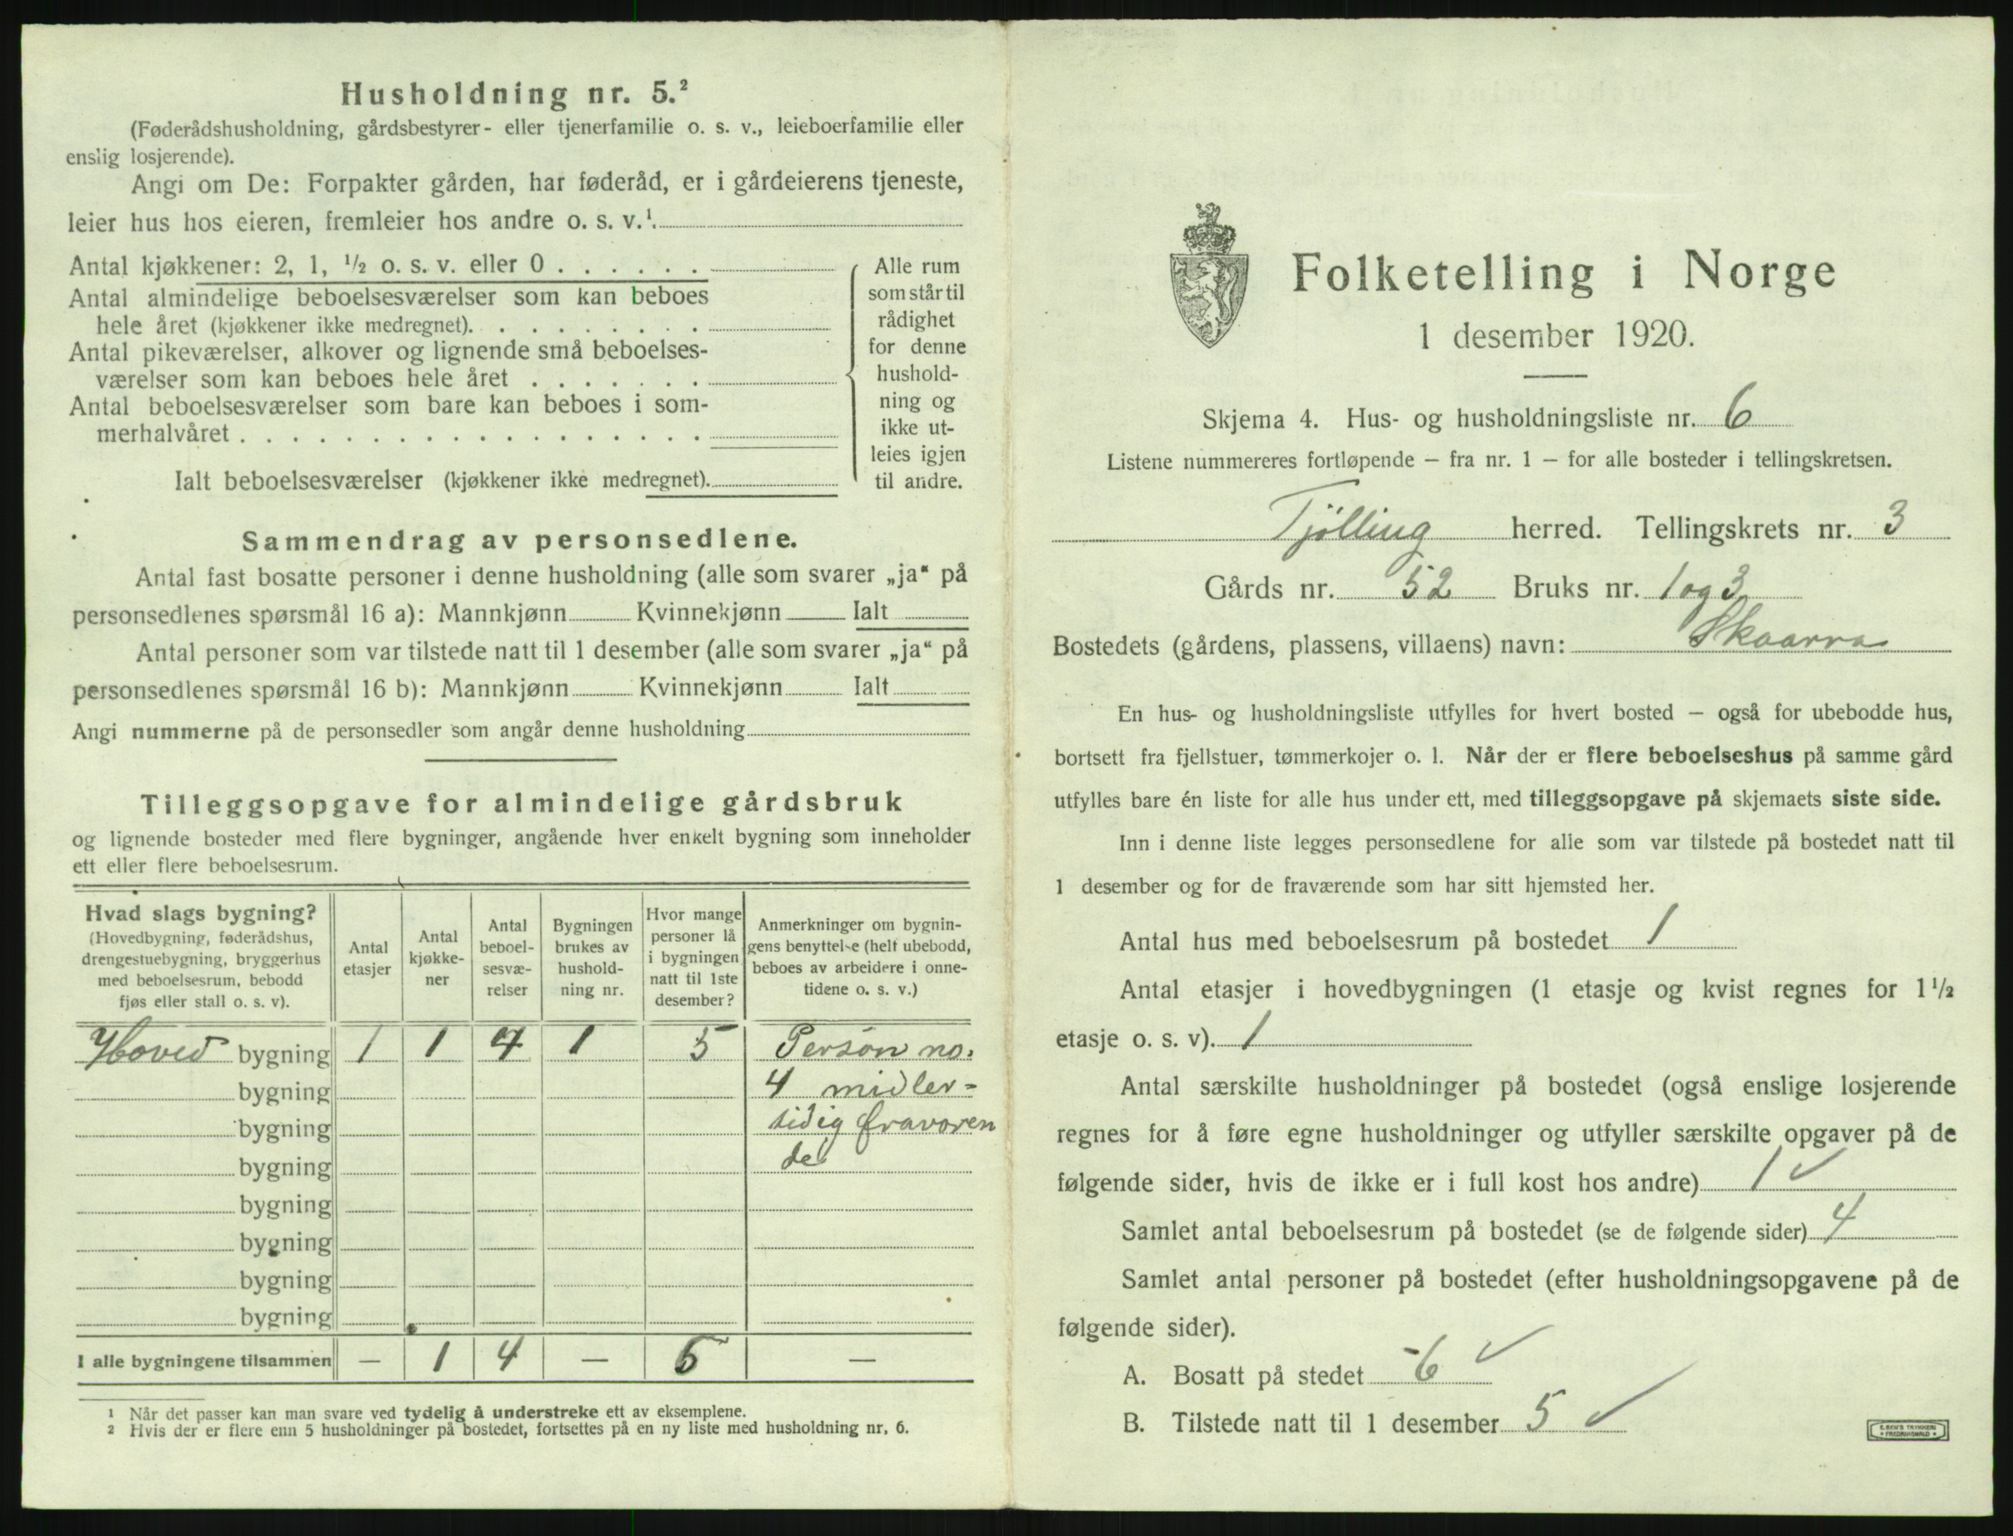 Husholdning nr. 5.²
(Føderådshusholdning, gårdsbestyrer- eller tjenerfamilie o. s. v., leieboerfamilie eller
enslig losjerende).
Angi om De: Forpakter gården, har føderåd, er i gårdeierens tjeneste,
leier hus hos eieren, fremleier hos andre o. s. v.¹.
Antal kjøkkener: 2, 1, ½ o. s. v. eller 0 . . . . . .
Antal almindelige beboelsesværelser som kan beboes
hele året (kjøkkener ikke medregnet). . . . . . . . .
Antal pikeværelser, alkover og lignende små beboelses-
værelser som kan beboes hele året . . . . . . .
Antal beboelsesværelser som bare kan beboes i som-
merhalvåret . . . . . . . . . . . . . . . . . .
Ialt beboelsesværelser (kjøkkener ikke medregnet).
Alle rum
som står til
rådighet
for denne
hushold-
ning og
ikke ut-
leies igjen
til andre.
Sammendrag av personsedlene.
Antal fast bosatte personer i denne husholdning (alle som svarer „ja“ på
personsedlenes spørsmål 16 a): Mannkjønn Kvinnekjønn Ialt
Antal personer som var tilstede natt til 1 desember (alle som svarer „ja“ på
personsedlenes spørsmål 16 b): Mannkjønn Kvinnekjønn Ialt
Angi nummerne på de personsedler som angår denne husholdning
Tilleggsopgave for almindelige gårdsbruk
og lignende bosteder med flere bygninger, angående hver enkelt bygning som inneholder
ett eller flere beboelsesrum.
Hvad slags bygning?
(Hovedbygning, føderådshus,
drengestuebygning, bryggerhus
med beboelsesrum, bebodd
fjøs eller stall o. s. v).
Antal
etasjer
Antal
kjøkke-
ner
Antal
beboel-
sesvæ-
relser
Bygningen
brukes av
hushold-
ning nr.
Hvor mange
personer lå
i bygningen
natt til 1ste
desember?
Anmerkninger om bygnin-
gens benyttelse (helt ubebodd,
beboes av arbeidere i onne-
tidene o. s. v.)
Hoved bygning 1 1 4 1 5 Person no.
bygning 4 midler-
bygning tidig fravoren
bygning de
bygning
bygning
bygning
bygning
I alle bygningene tilsammen — 1 4 — 5 —
¹ Når det passer kan man svare ved tydelig å understreke ett av eksemplene.
² Hvis der er flere enn 5 husholdninger på bostedet, fortsettes på en ny liste med husholdning nr. 6.
Folketelling i Norge
1 desember 1920.
Skjema 4. Hus- og husholdningsliste nr. 6
Listene nummereres fortløpende – fra nr. 1 – for alle bosteder i tellingskretsen.
Tjölling herred. Tellingskrets nr. 3
Gårds nr. 52 Bruks nr. 1 og 3
Bostedets (gårdens, plassens, villaens) navn: Skaarra
En hus- og husholdningsliste utfylles for hvert bosted – også for ubebodde hus,
bortsett fra fjellstuer, tømmerkojer o. l. Når der er flere beboelseshus på samme gård
utfylles bare én liste for alle hus under ett, med tilleggsopgave på skjemaets siste side.
Inn i denne liste legges personsedlene for alle som var tilstede på bostedet natt til
1 desember og for de fraværende som har sitt hjemsted her.
Antal hus med beboelsesrum på bostedet 1
Antal etasjer i hovedbygningen (1 etasje og kvist regnes for 1½
etasje o. s. v). 1
Antal særskilte husholdninger på bostedet (også enslige losjerende
regnes for å føre egne husholdninger og utfyller særskilte opgaver på de
følgende sider, hvis de ikke er i full kost hos andre) 1 ✓
Samlet antal beboelsesrum på bostedet (se de følgende sider) 4
Samlet antal personer på bostedet (efter husholdningsopgavene på de
følgende sider).
A. Bosatt på stedet 6 ✓
B. Tilstede natt til 1 desember 5 ✓